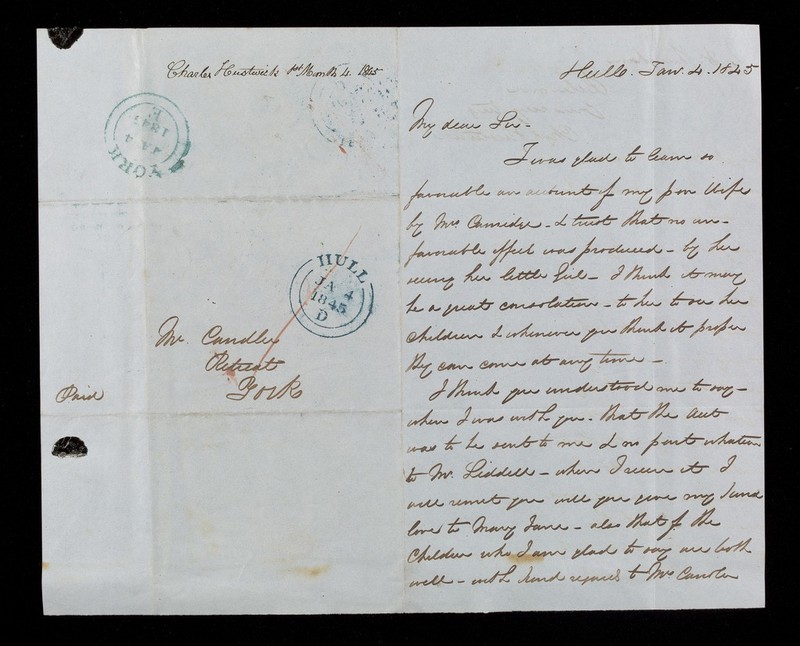 Charles Hustwick 1st Month 4. 1845
YORK
JA 4
1845
E
HULL
JA 4
1845
D
Mr. Candler
Retreat
York
Paid
Hull. Jan. 4. 1845
My dear Sir -
I was glad to learn so
favorable an account of my poor Wife
by Mrs Camidge - & trust that no un-
favorable effect was produced - by her
seeing her little Girl - I think it may
be a great consolation - to her to see her
children & whenever you think it proper
they can come at any time -
I think you understood me to say -
when I was with you - that the Acct
was to be sent to me & no part whatever
to Mr. Liddell - when I receive it I
will remit you will you give my kind
love to Mary Jane - also that of the
Children who I am glad to say are both
well - with kind regards to Mrs Candler